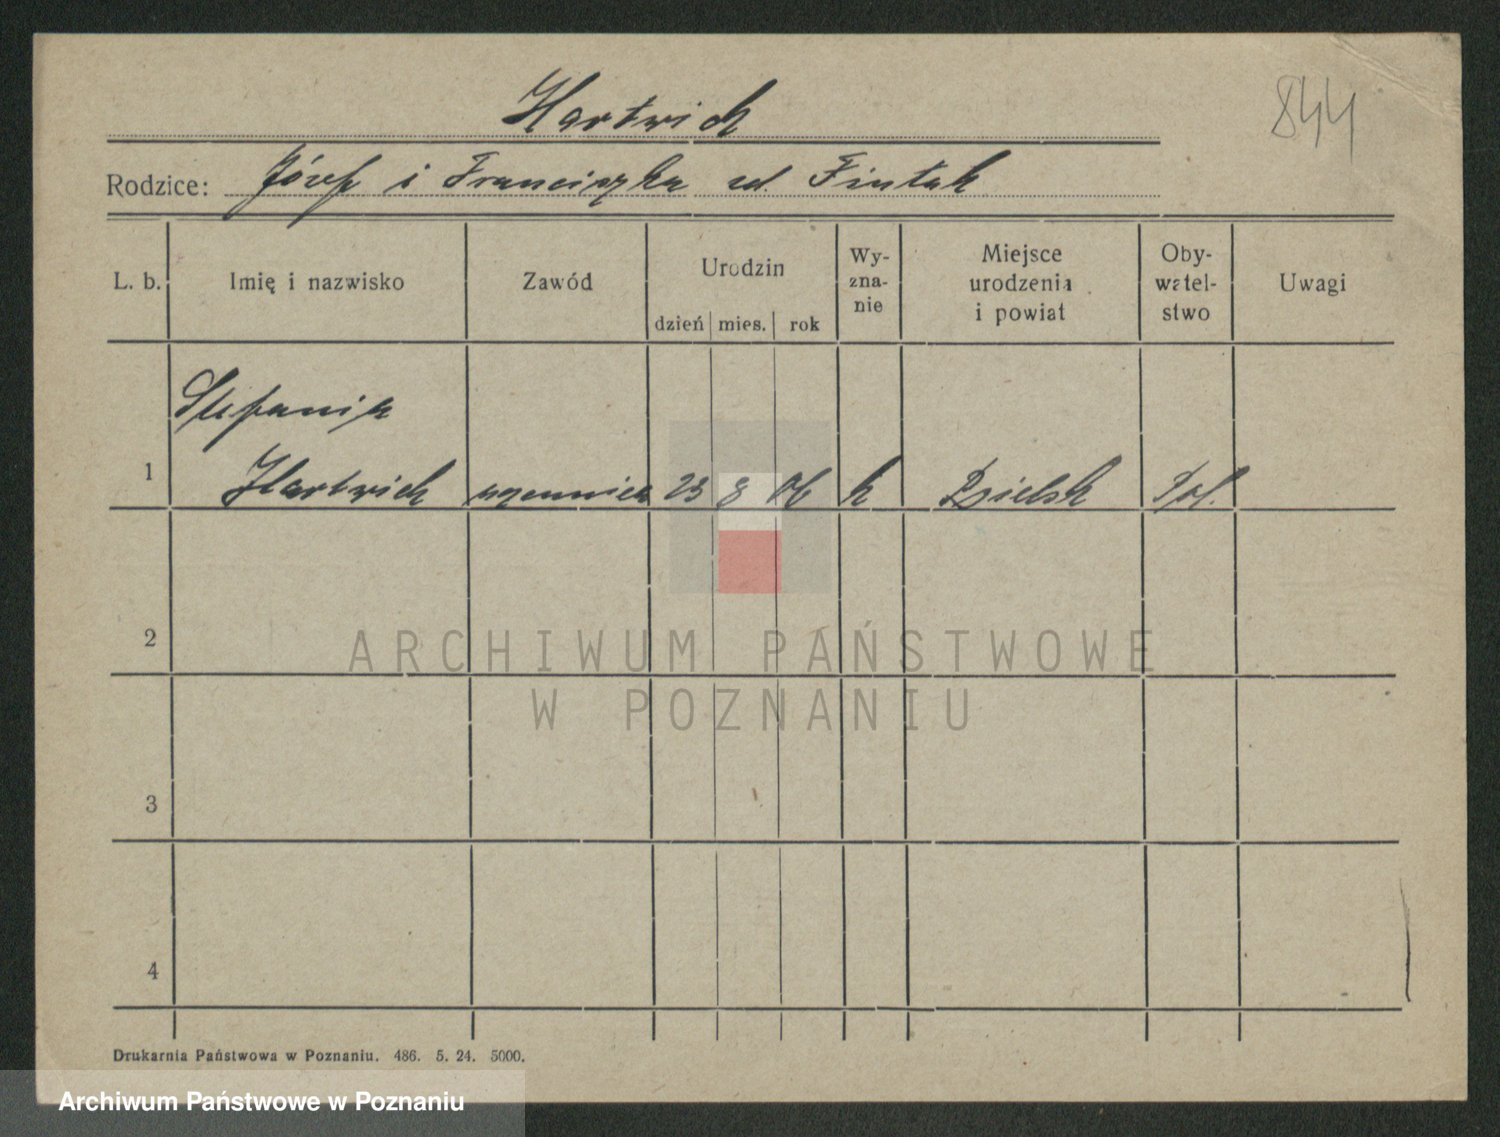 Hartwich
844
Rodzice: Józef i Franciszka zd. Fintak
L. b.
Imię i nazwisko
Zawód
Urodzin
dzień mies. rok
Wy-
zna-
nie
Miejsce
urodzenia
i powiat
Oby-
watel-
stwo
Uwagi
Stefania
1 Hartwich uczennica 23 8 06 k Bielsk Pol.
2
3
4
ARCHIWUM PAŃSTWOWE
W POZNANIU
Drukarnia Państwowa w Poznaniu. 486. 5. 24. 5000.
Archiwum Państwowe w Poznaniu